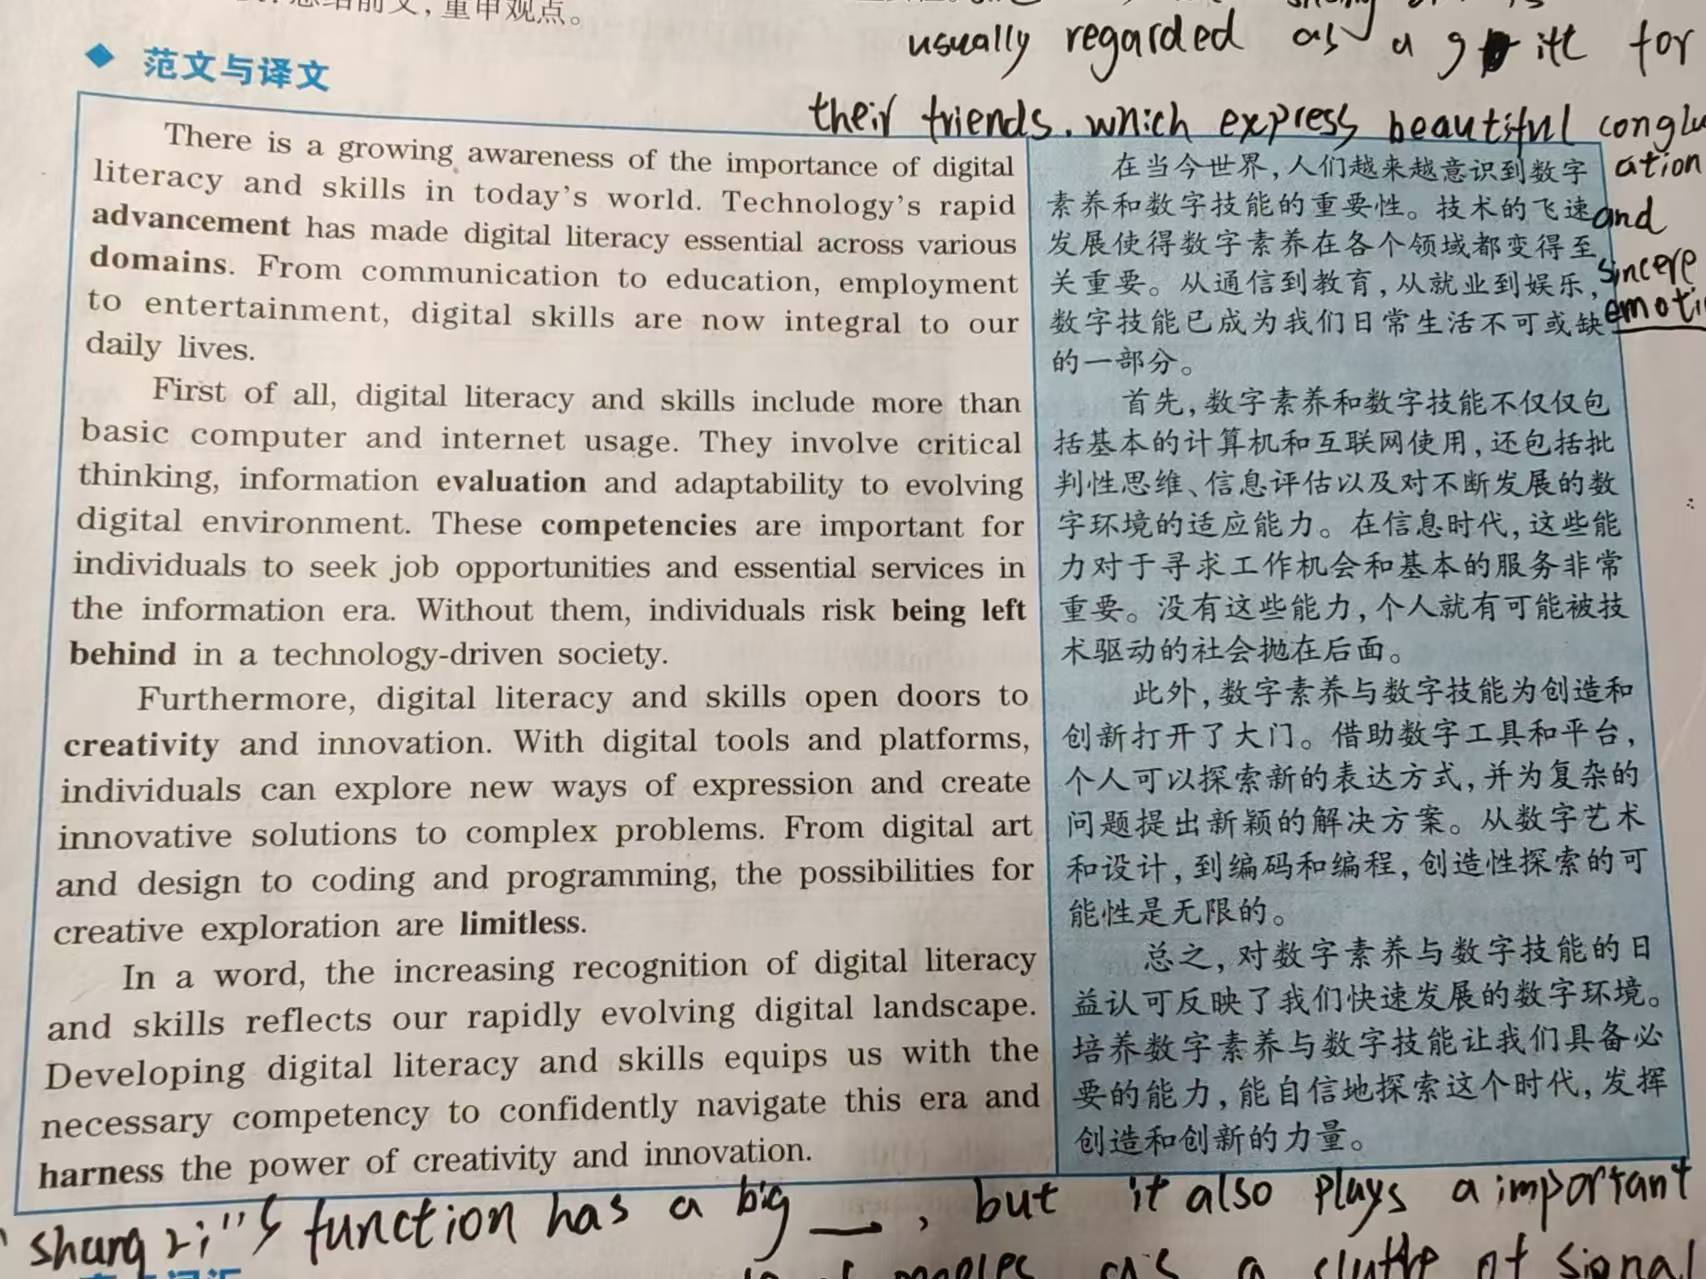 重申观点。
usually regarded as a for
their friends. which express beautiful
ation
and
sincere
◆ 范文与译文
There is a growing awareness of the importance of digital
literacy and skills in today's world. Technology's rapid
advancement has made digital literacy essential across various
domains. From communication to education, employment
to entertainment, digital skills are now integral to our
daily lives.
First of all, digital literacy and skills include more than
basic computer and internet usage. They involve critical
thinking, information evaluation and adaptability to evolving
digital environment. These competencies are important for
individuals to seek job opportunities and essential services in
the information era. Without them, individuals risk being left
behind in a technology-driven society.
Furthermore, digital literacy and skills open doors to
creativity and innovation. With digital tools and platforms,
individuals can explore new ways of expression and create
innovative solutions to complex problems. From digital art
and design to coding and programming, the possibilities for
creative exploration are limitless.
In a word, the increasing recognition of digital literacy
and skills reflects our rapidly evolving digital landscape.
Developing digital literacy and skills equips us with the
necessary competency to confidently navigate this era and
harness the power of creativity and innovation.
在当今世界,人们越来越意识到数字
素养和数字技能的重要性。技术的飞速
发展使得数字素养在各个领域都变得至
关重要。从通信到教育,从就业到娱乐,
数字技能已成为我们日常生活不可或缺
的一部分。
首先,数字素养和数字技能不仅仅包
括基本的计算机和互联网使用,还包括批
判性思维、信息评估以及对不断发展的数
字环境的适应能力。在信息时代,这些能
力对于寻求工作机会和基本的服务非常
重要。没有这些能力,个人就有可能被技
术驱动的社会抛在后面。
此外,数字素养与数字技能为创造和
创新打开了大门。借助数字工具和平台,
个人可以探索新的表达方式,并为复杂的
问题提出新颖的解决方案。从数字艺术
和设计,到编码和编程,创造性探索的可
能性是无限的。
总之,对数字素养与数字技能的日
益认可反映了我们快速发展的数字环境。
培养数字素养与数字技能让我们具备必
要的能力,能自信地探索这个时代,发挥
创造和创新的力量。
function has a big __, but it also plays a important
of